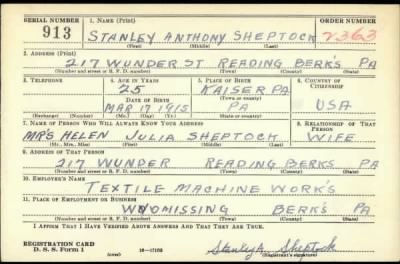 SERIAL NUMBER 1. NAME (Print) ORDER NUMBER
913 STANLEY ANTHONY SHEPTOCK 2363
(First) (Middle) (Last)
2. ADDRESS (Print)
217 WUNDER ST READING BERK'S PA
(Number and street or R. F. D. number) (Town) (County) (State)
3. TELEPHONE 4. AGE IN YEARS 5. PLACE OF BIRTH 6. COUNTRY OF CITIZENSHIP
25 KAISER PA
DATE OF BIRTH (Town or county)
MAR 17 1915 PA USA
(Exchange) (Number) (Mo.) (Day) (Yr.) (State or country)
7. NAME OF PERSON WHO WILL ALWAYS KNOW YOUR ADDRESS 8. RELATIONSHIP OF THAT PERSON
MR'S HELEN JULIA SHEPTOCK WIFE
(Mr., Mrs., Miss) (First) (Middle) (Last)
9. ADDRESS OF THAT PERSON
217 WUNDER READING BERKS PA
(Number and street or R. F. D. number) (Town) (County) (State)
10. EMPLOYER'S NAME
TEXTILE MACHINE WORK'S
11. PLACE OF EMPLOYMENT OR BUSINESS
WYOMISSING BERK'S PA
(Number and street or R. F. D. number) (Town) (County) (State)
I AFFIRM THAT I HAVE VERIFIED ABOVE ANSWERS AND THAT THEY ARE TRUE.
REGISTRATION CARD
D. S. S. Form 1 (over) 16—17105 Stanley A. Sheptock
(Registrant's signature)